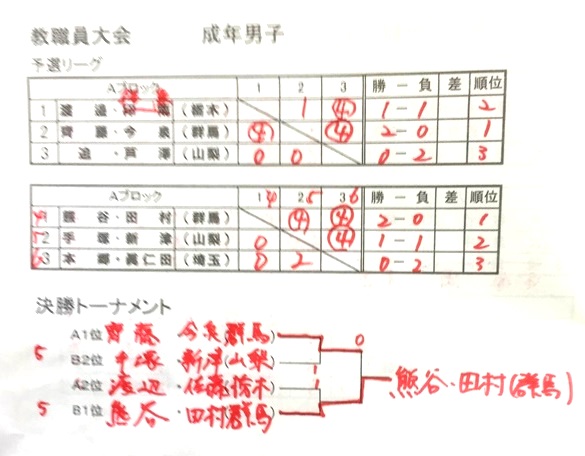 教職員大会 成年男子
予選リーグ
Aブロック 1 2 3 勝 ー 負 差 順位
1 渡 邉・ (栃木) 1 ④ 1 ー 1 2
2 齊 藤・今 泉 (群馬) ④ ④ 2 ー 0 1
3 追・戸 澤 (山梨) 0 0 0 ー 2 3
Aブロック 1 4 2 5 3 6 勝 ー 負 差 順位
4 熊 谷・田 村 (群馬) ④ ④ 2 ー 0 1
5 2 手 塚・新 津 (山梨) 0 ④ 1 ー 1 2
6 3 本 郷・眞仁田 (埼玉) 0 2 0 ー 2 3
決勝トーナメント
A1位 齊藤 今泉(群馬) 0
5 B2位 手塚・新津(山梨)
A2位 渡辺・佐藤(栃木) 1
5 B1位 熊谷・田村(群馬)
熊谷・田村(群馬)